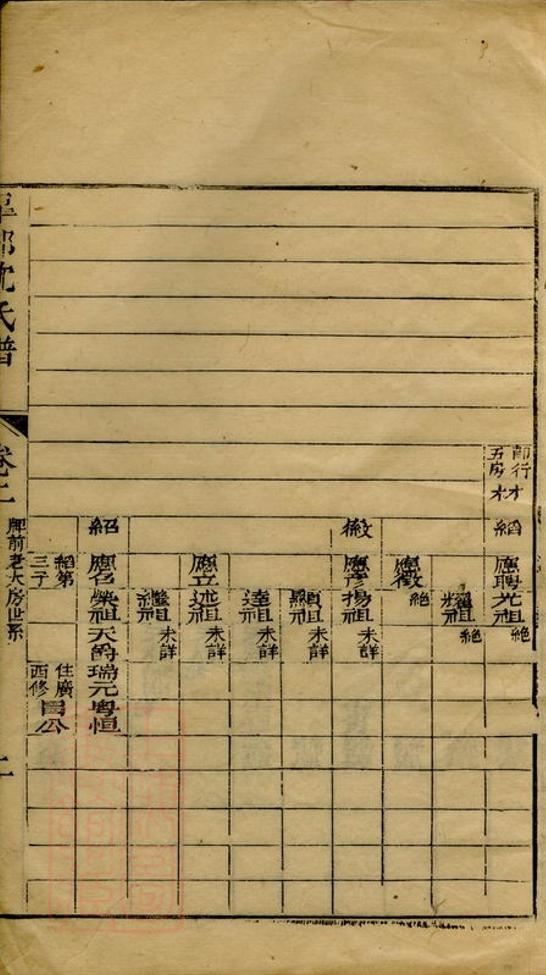 沈氏譜
卷二
牌前老大房世系
前行
五房
才
才
縚
應聘
光祖
絕
耀祖
絕
應徵
絕
徽
應彥
揚祖
未詳
顯祖
未詳
達祖
未詳
應立
述祖
未詳
繼祖
未詳
紹
應召
榮祖
天爵
瑞元
粵恒
縚第
三子
住廣
西修
因公